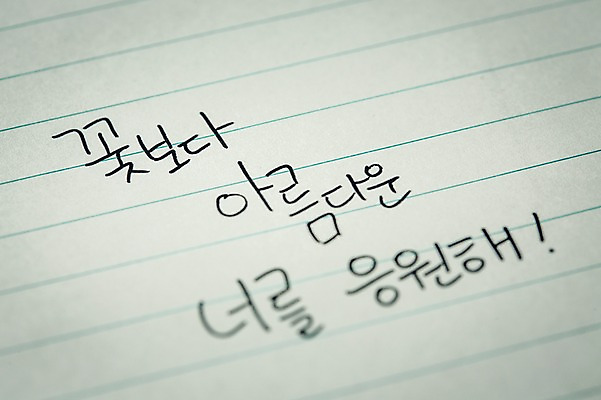 꽃보다
아름다운
너를 응원해!